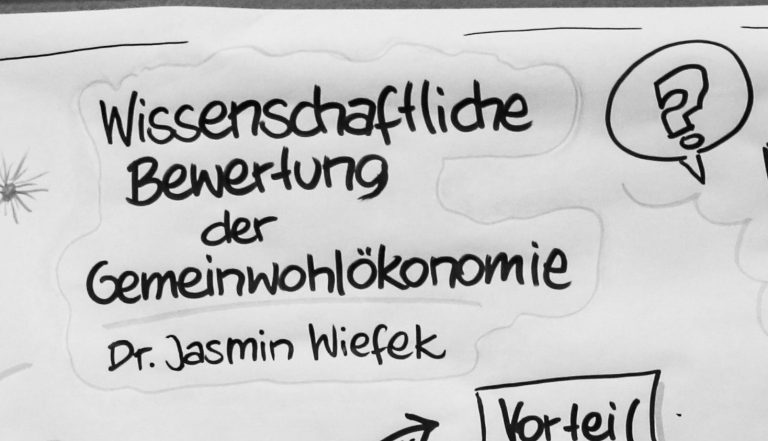 Wissenschaftliche
Bewertung
der
Gemeinwohlökonomie
Dr. Jasmin Wiefek
?
Vorteil